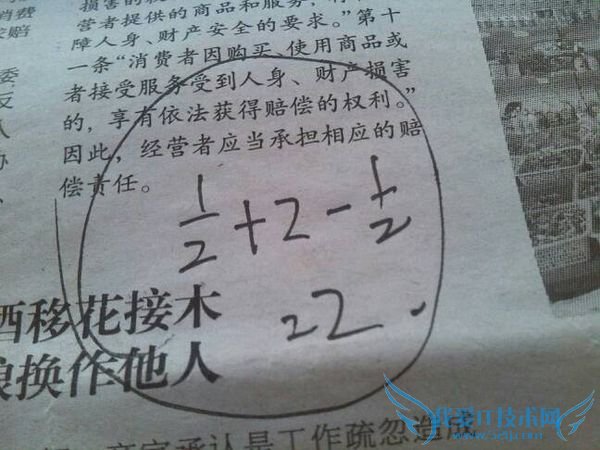 损害的
营者提供的商品和服务,
障人身、财产安全的要求。”第十
一条“消费者因购买、使用商品或
者接受服务受到人身、财产损害
的,享有依法获得赔偿的权利。”
因此,经营者应当承担相应的赔
偿责任。
消费
赔
委
反
1/2+2-1/2
=2.
移花接木
换作他人
商家承认是工作疏忽造成
我爱IT技术网
www.52ij.com